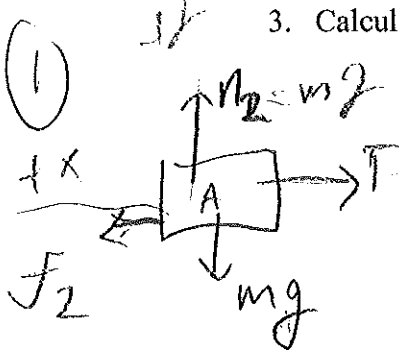 3. Calcul
1
n2 = mg
+x
A
T
f2
mg